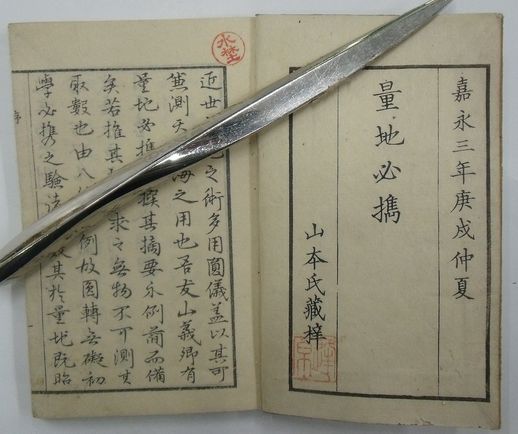 嘉永三年庚戌仲夏
量地必擕
山本氏藏梓
水埜
近世之術多用圓儀盖以其可
測天海之用也吾友山義卿有
量地必携其摘要示例簡而備
矣若推其求之無物不可測其
取數也由八例故圓轉無礙初
學必携之驗其於量地既昭
序